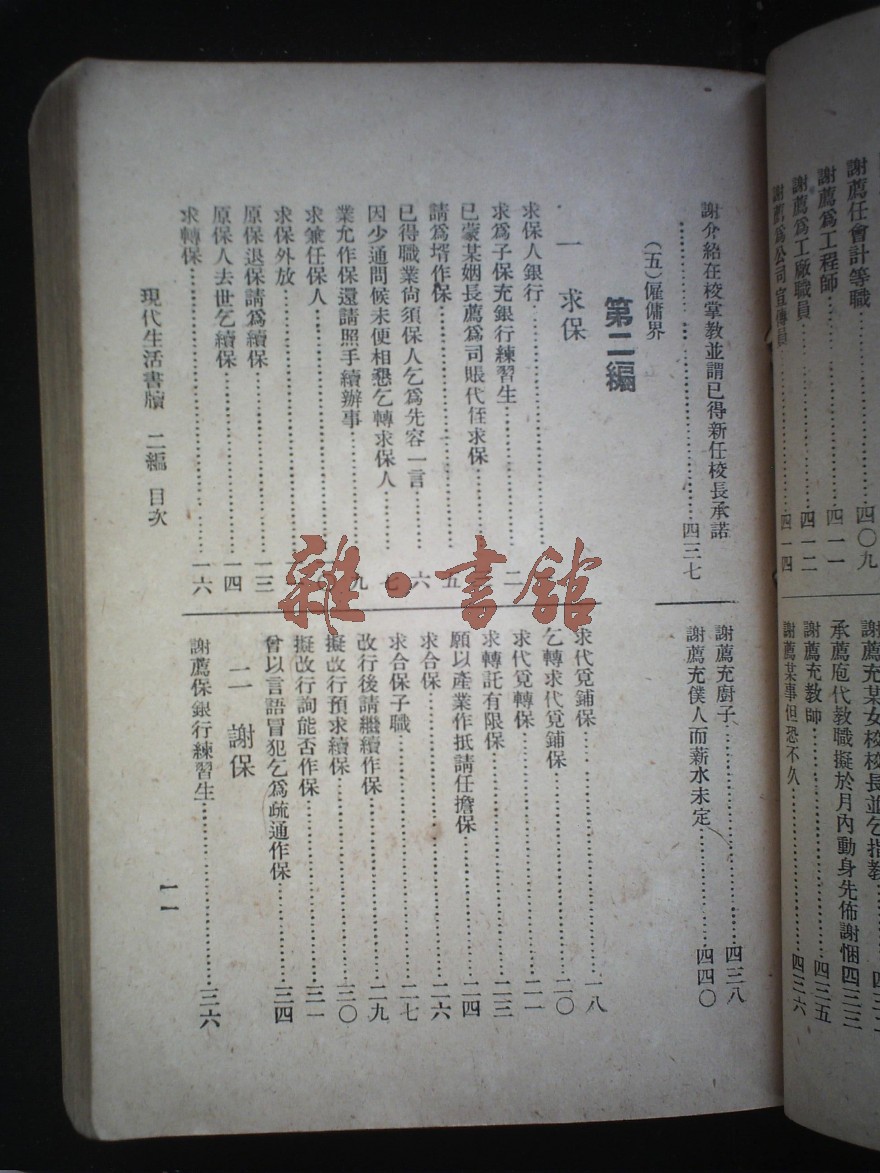 謝薦任會計等職 四〇九
謝薦爲工程師 四一一
謝薦爲工廠職員 四一二
謝薦爲公司宣傳員 四一四
謝薦充某女校校長並乞指教
承薦庖代教職擬於月內動身先佈謝悃 四三三
謝薦充教師 四三五
謝薦某事但恐不久 四三六
謝介紹在校掌教並謂已得新任校長承諾
四三七
(五)僱傭界
謝薦充廚子 四三八
謝薦充僕人而薪水未定 四四〇
第二編
一 求保
求保人銀行
求爲子保充銀行練習生 二
已蒙某姻長薦爲司賬代侄求保
請爲壻作保 五
已得職業尙須保人乞爲先容一言 六
因少通問候未便相懇乞轉求保人 七
業允作保還請照手續辦事 九
求兼任保人
求保外放
原保退保請爲續保 一三
原保人去世乞續保 一四
求轉保 一六
求代覓鋪保 一八
乞轉求代覓鋪保 二〇
求代覓轉保 二一
求轉託有限保 二三
願以產業作抵請任擔保 二四
求合保 二六
求合保子職 二七
改行後請繼續作保 二九
擬改行預求續保 三〇
擬改行詢能否作保 三一
曾以言語冒犯乞爲疏通作保 三四
二 謝保
謝薦保銀行練習生 三六
現代生活書牘 二編 目次
一一
雜·書館